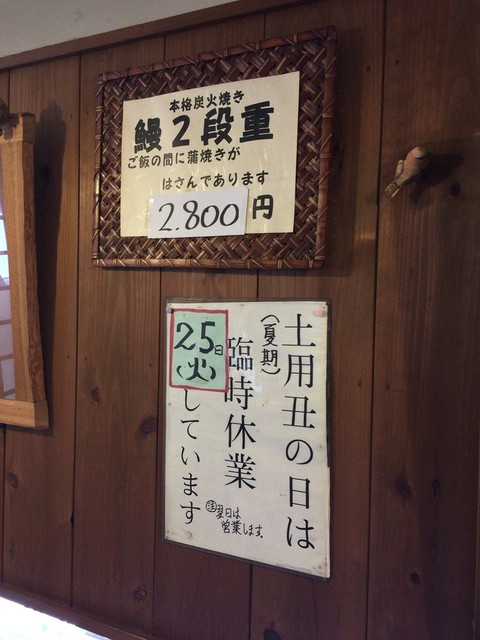 本格炭火焼き
鰻2段重
ご飯の間に蒲焼きが
はさんであります
2,800円
土用丑の日は
(夏期)
臨時休業
25日
(火)
しています
注翌日は
営業します。